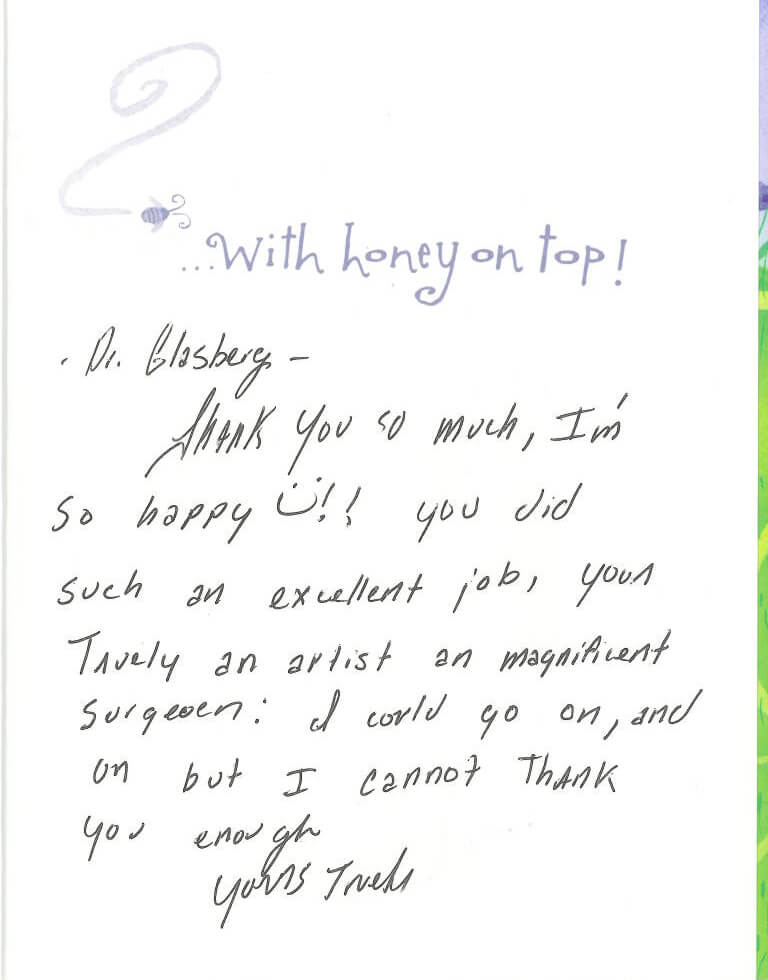 ...with honey on top!
. Dr. Glasberg –
Thank you so much, I'm
so happy !! you did
such an excellent job, your
Truely an artist an magnificent
surgeoen: I could go on, and
on but I cannot Thank
you enough
yours Truely